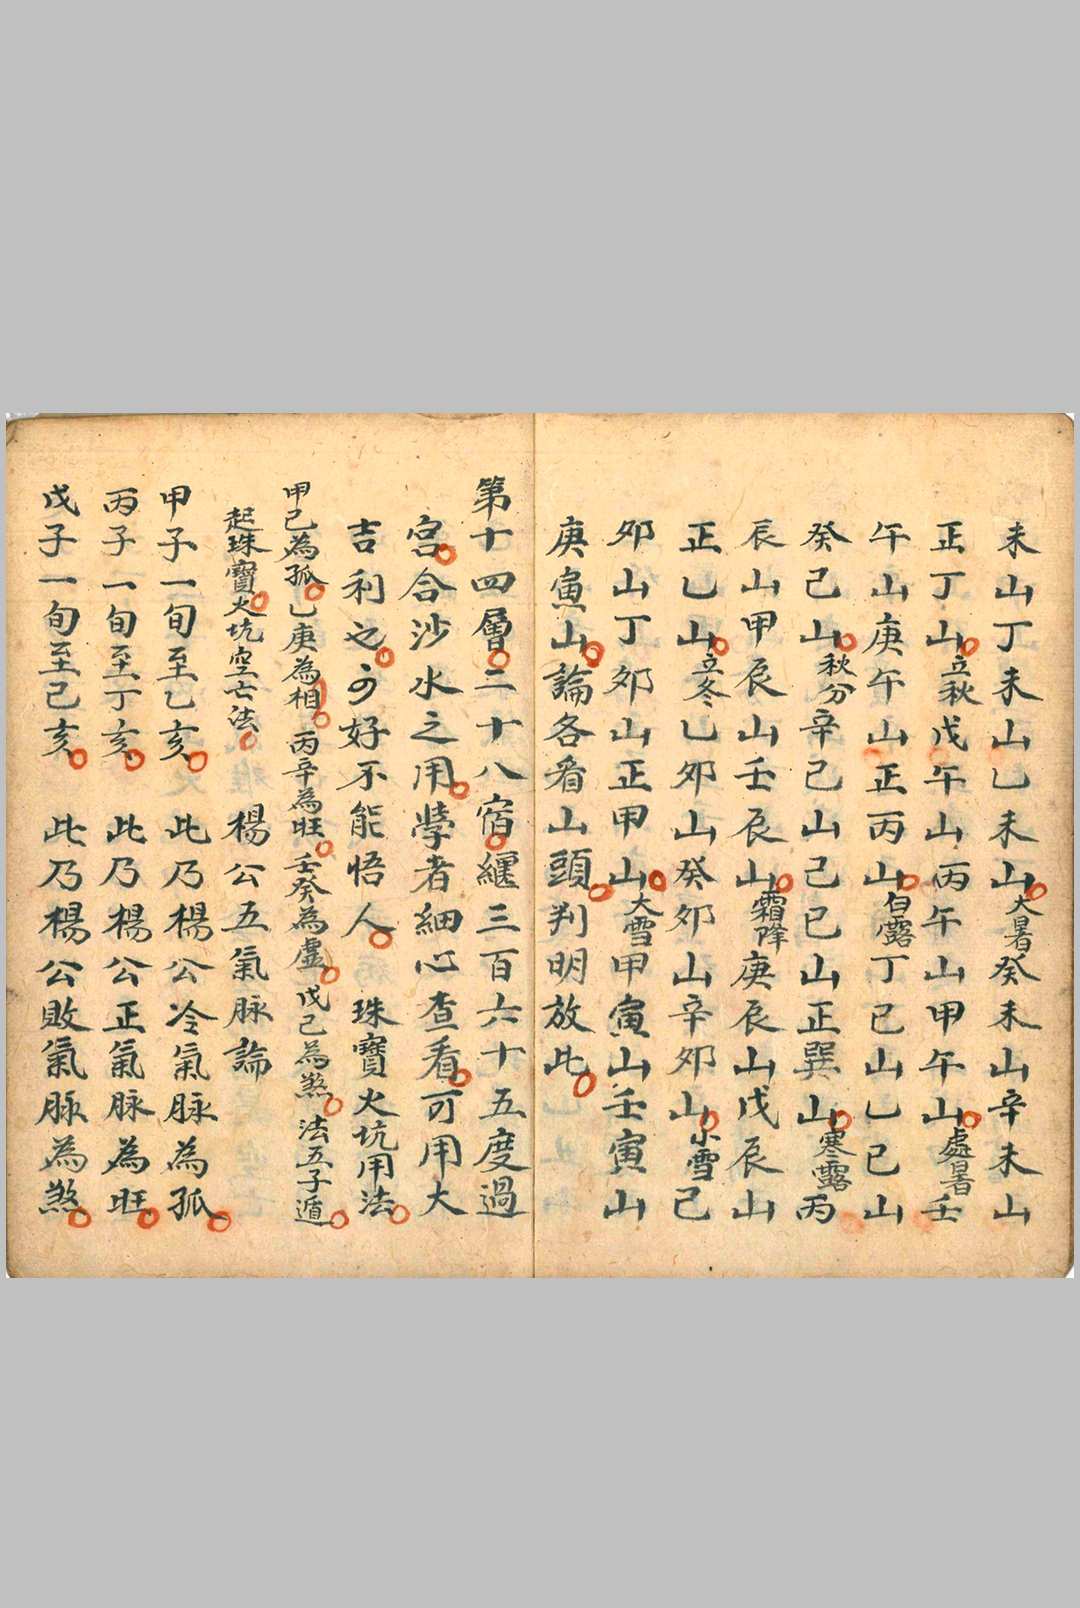 未山丁未山乙未山大暑癸未山辛未山
正丁山立秋戊午山丙午山甲午山處暑壬
午山庚午山正丙山白露丁巳山乙巳山
癸巳山秋分辛巳山己巳山正巽山寒露丙
辰山甲辰山壬辰山霜降庚辰山戊辰山
正乙山立冬乙卯山癸卯山辛卯山小雪己
卯山丁卯山正甲山大雪甲寅山壬寅山
庚寅山論各看山頭判明放此
第十四層二十八宿纏三百六十五度過
宮合沙水之用學者細心查看可用大
吉利之可好不能悟人 珠寶火坑用法
甲己為孤乙庚為相丙辛為旺壬癸為虛戊己為煞法五子遁
起珠寶火坑空亡法 楊公五氣脉論
甲子一旬至乙亥 此乃楊公冷氣脉為孤
丙子一旬至丁亥 此乃楊公正氣脉為旺
戊子一旬至己亥 此乃楊公敗氣脉為煞